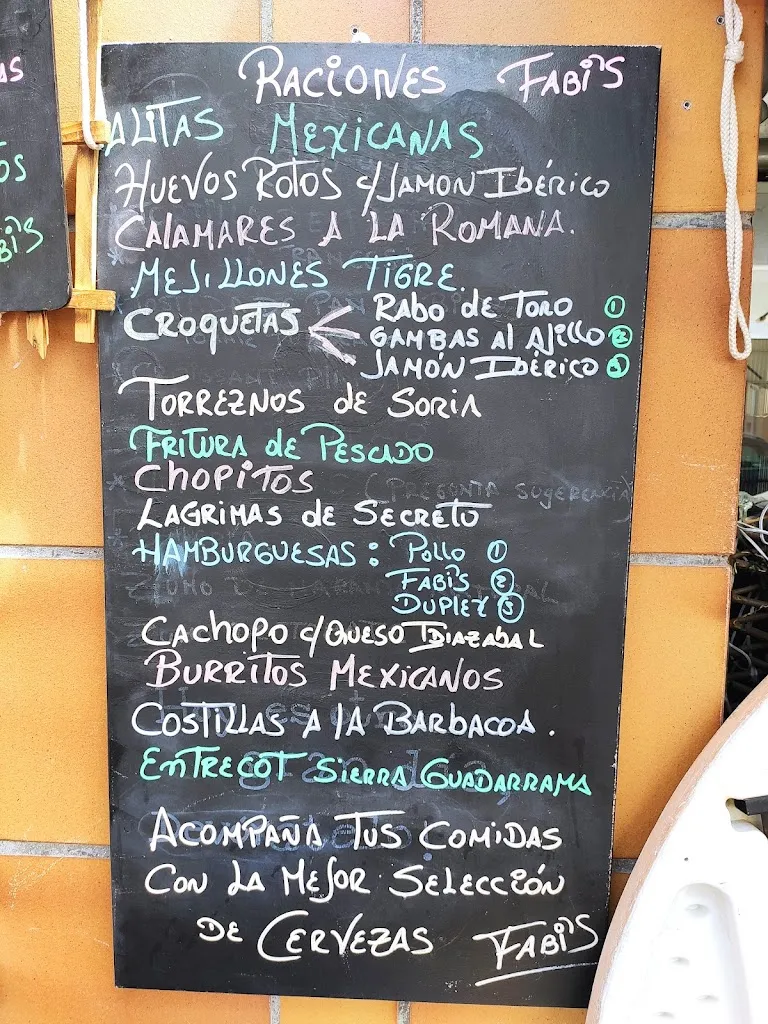 RACIONES FABI'S
ALITAS MEXICANAS
HUEVOS ROTOS C/JAMON IBÉRICO
CALAMARES A LA ROMANA.
MEJILLONES TIGRE.
CROQUETAS
RABO DE TORO 1
GAMBAS AL AJILLO 2
JAMÓN IBÉRICO 3
TORREZNOS DE SORIA
FRITURA DE PESCADO
CHOPITOS
(PREGUNTA SUGERENCIA)
LAGRIMAS DE SECRETO
HAMBURGUESAS: POLLO 1
FABI'S 2
DUPLEX 3
CACHOPO C/QUESO IDIAZABAL
BURRITOS MEXICANOS
COSTILLAS A LA BARBACOA.
ENTRECOT SIERRA GUADARRAMA
ACOMPAÑA TUS COMIDAS
CON LA MEJOR SELECCIÓN
DE CERVEZAS FABI'S